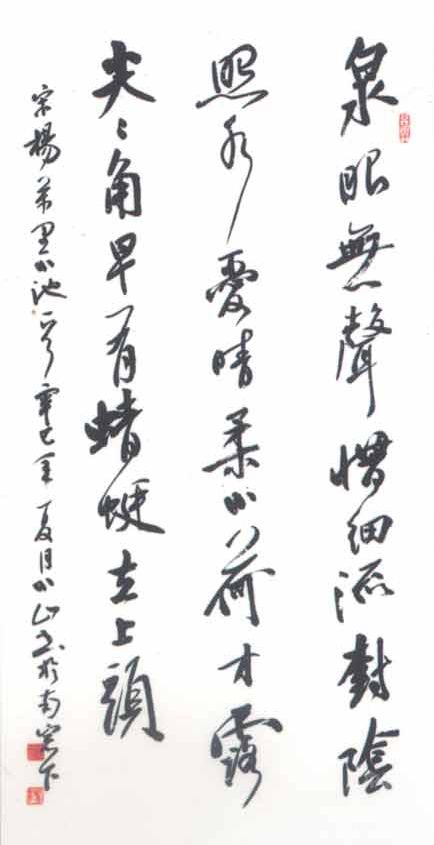 泉眼無聲惜細流樹陰
照水愛晴柔小荷才露
尖々角早有蜻蜓立上頭
宋楊萬里小池一首辛巳年夏月小山书於南窗下